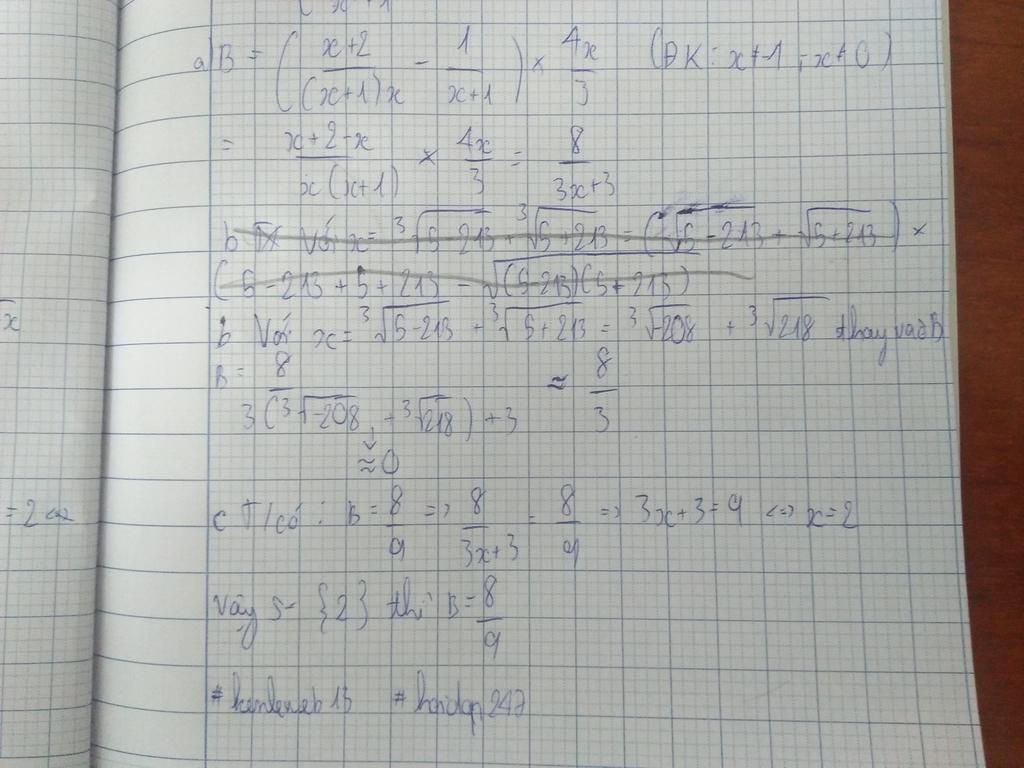 a) B = ( (x+2)/((x+1)x) - 1/(x+1) ) × 4x/3 (ĐK: x≠-1; x≠0)
= (x+2-x)/(x(x+1)) × 4x/3 = 8/(3x+3)
b Với x = ³√(5-213) + ³√(5+213) = ( √5 - 213 + √(5+213) ) ×
(5-213+5+213 - √((5-213)(5+213)
b Với x = ³√(5-213) + ³√(5+213) = ³√(-208) + ³√218 thay vào B
B = 8/(3(³√(-208) + ³√218) + 3) ≈ 8/3
≈ 0
c T/có: B = 8/9 => 8/(3x+3) = 8/9 => 3x+3=9 <=> x=2
Vậy S= {2} thì B = 8/9
= 2 <=>
√x